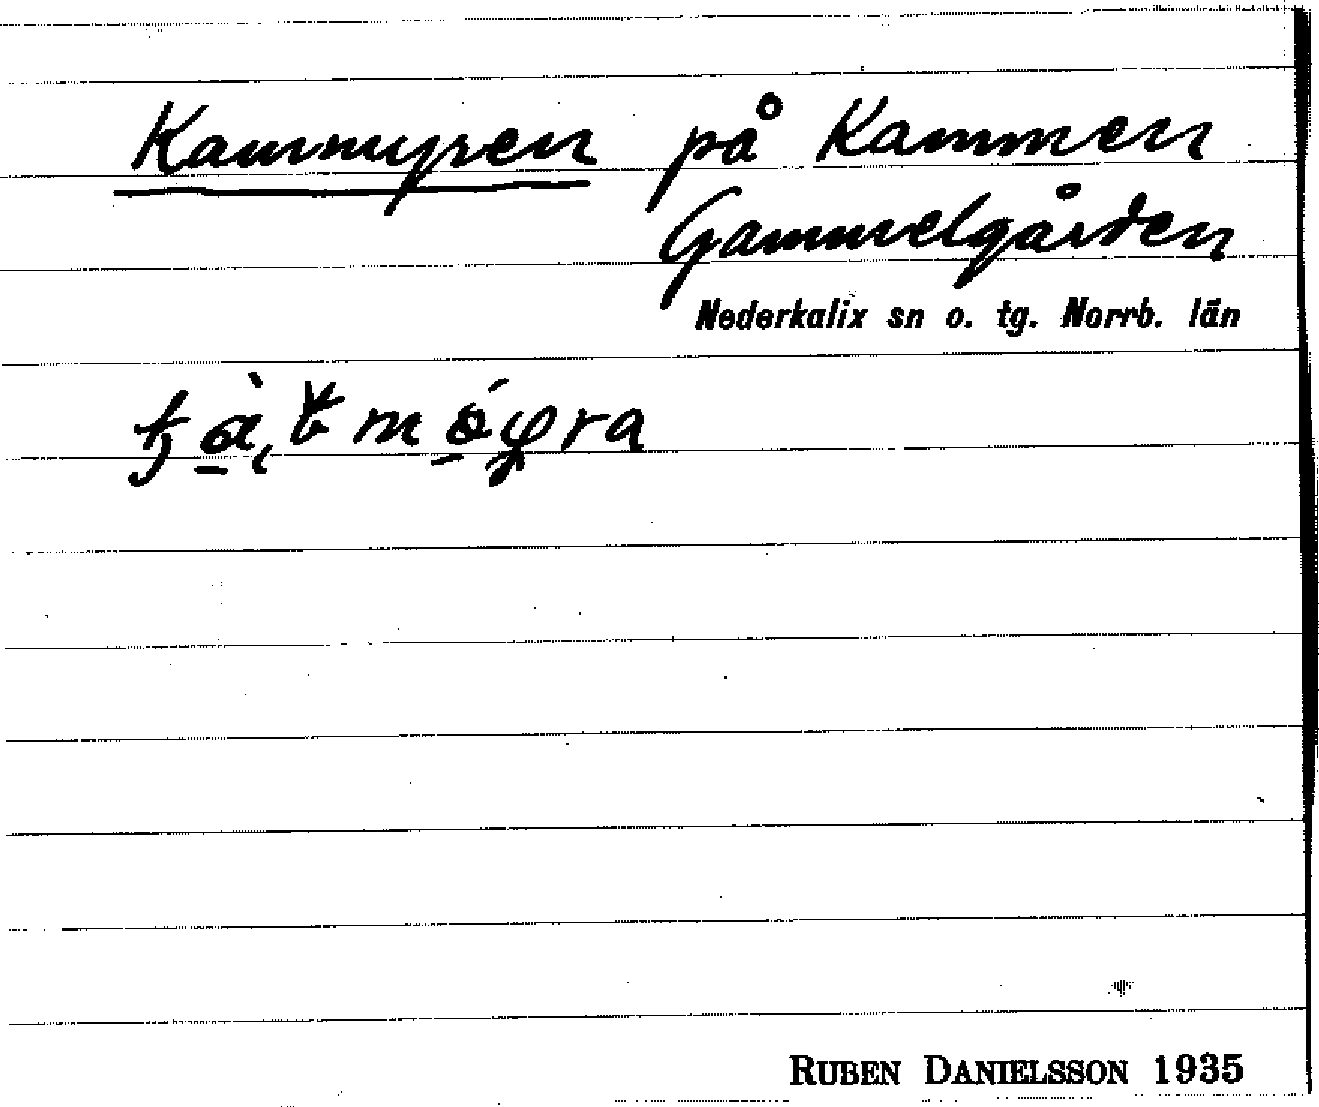 Kammyren på Kammen
Gammelgården
Nederkalix sn o. tg. Norrb. län
RUBEN DANIELSSON 1935